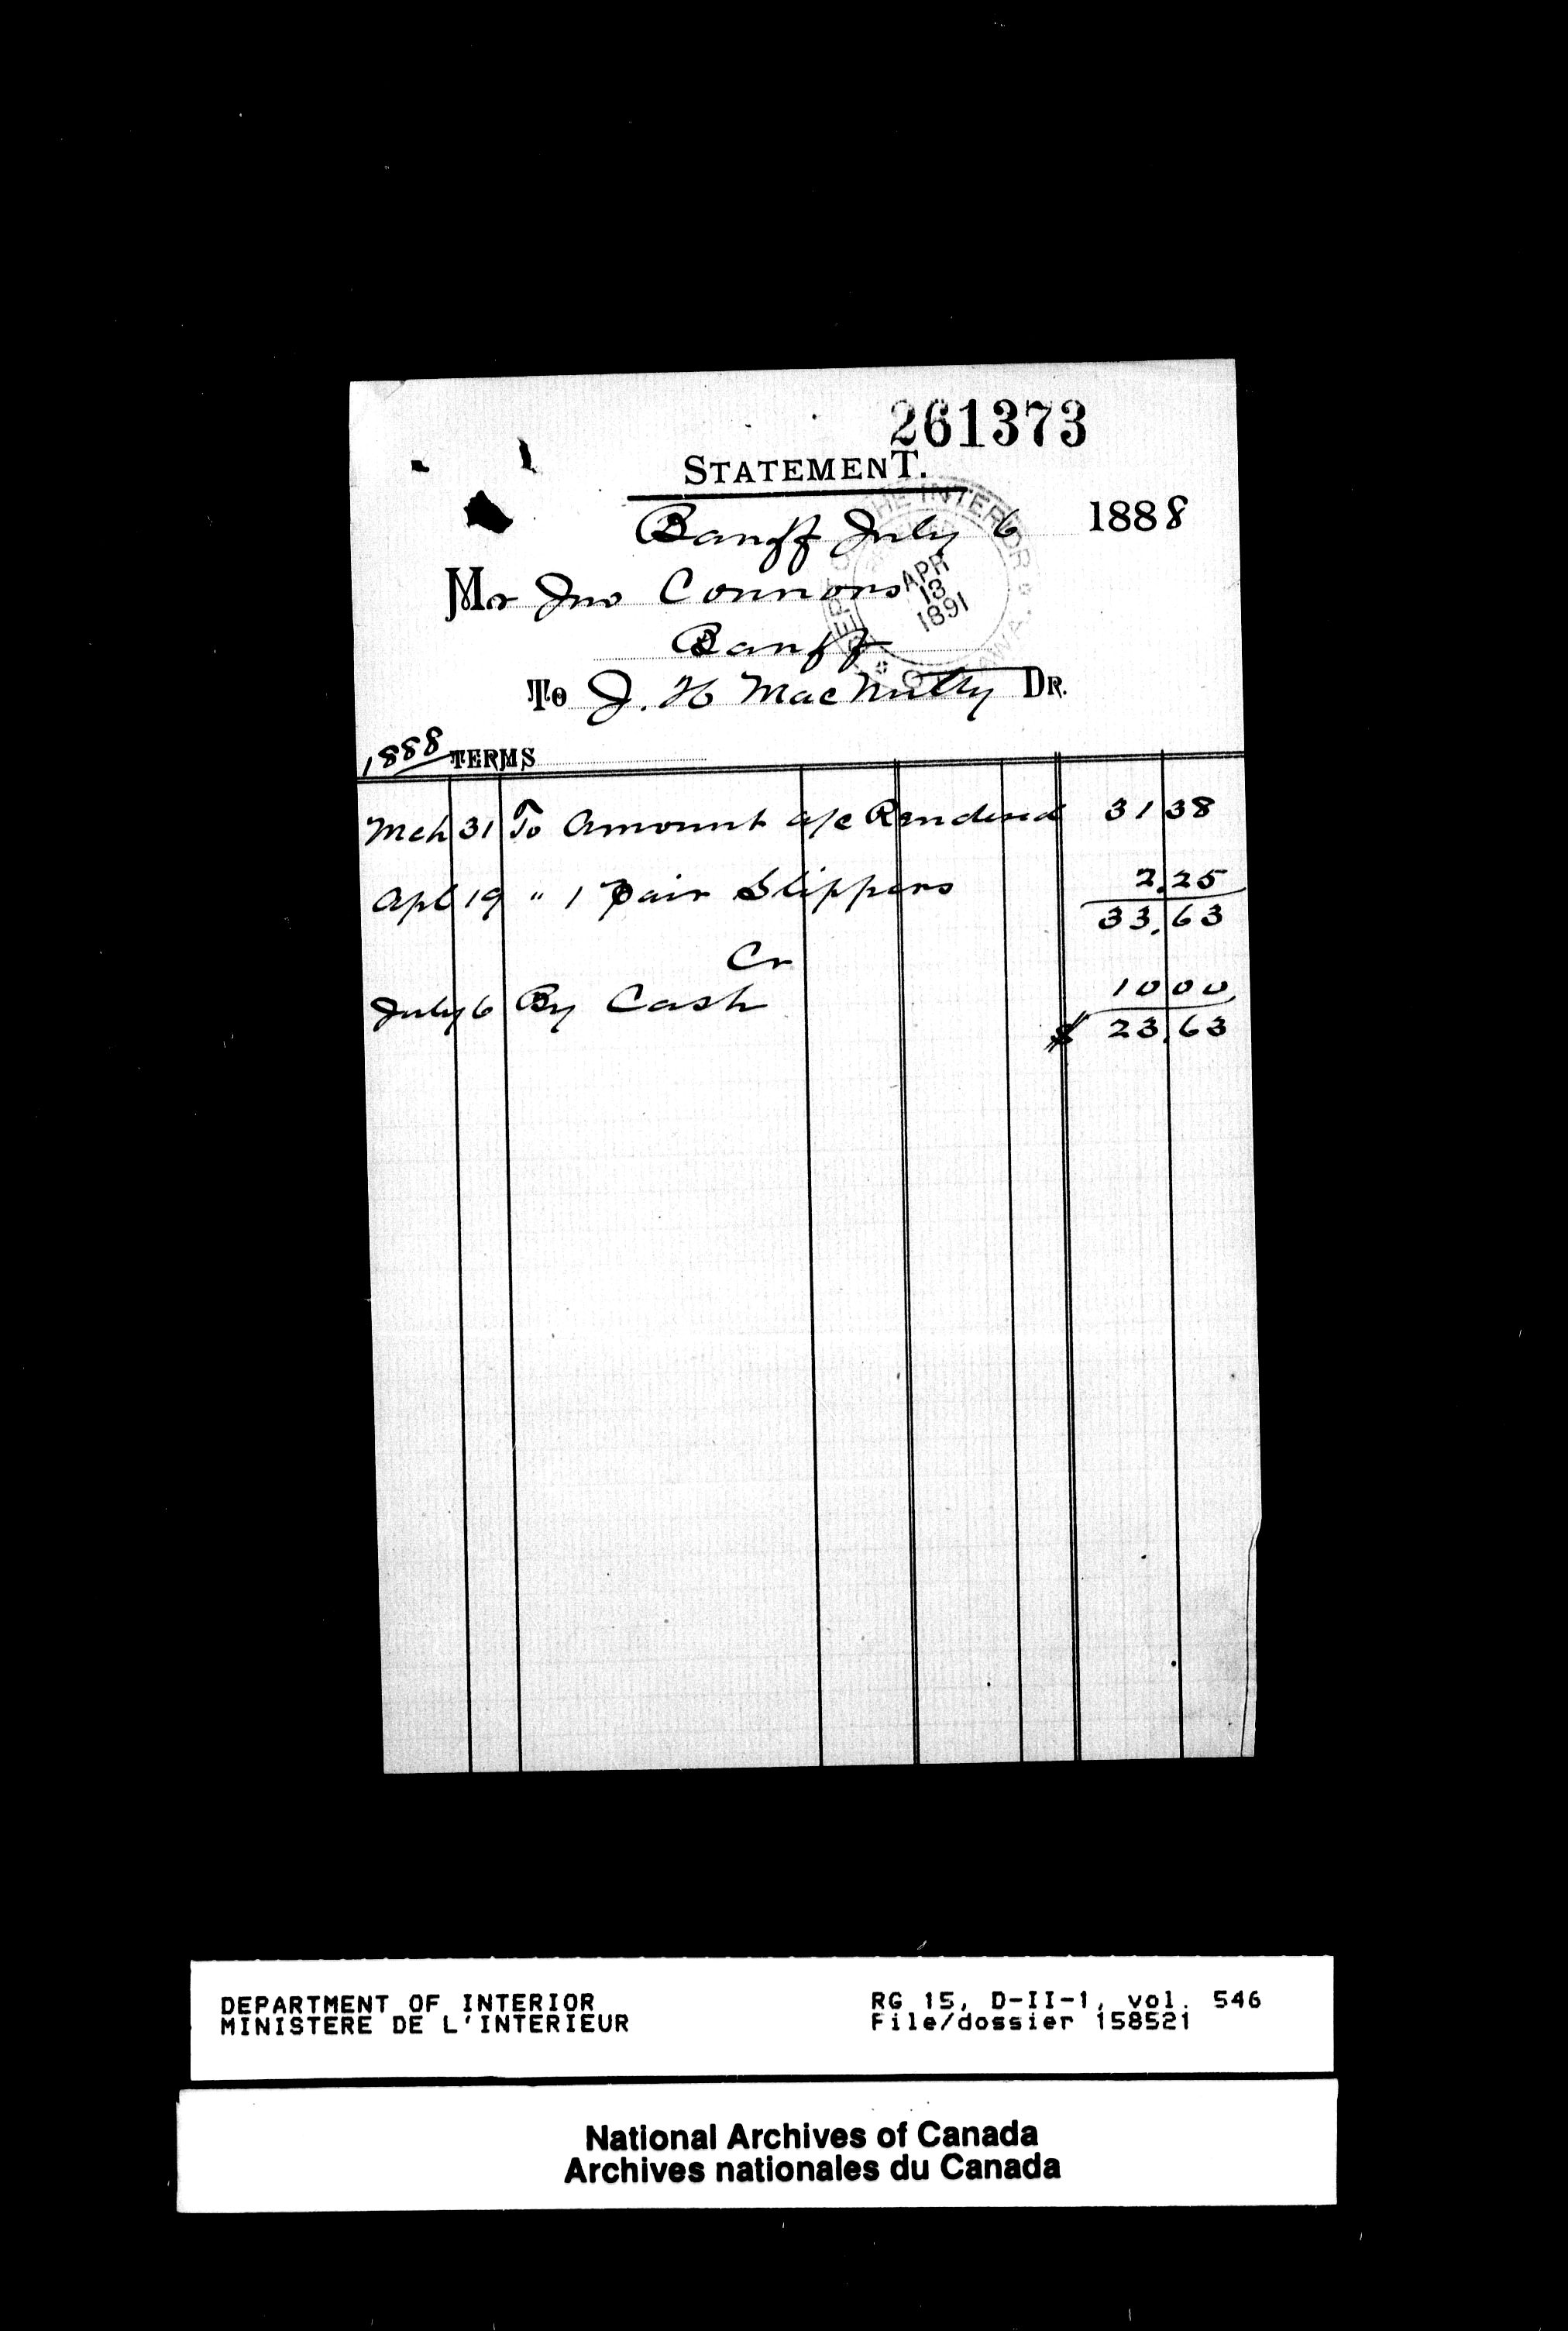 261373
STATEMENT.
Banff July 6 1888
Mr Jno Connors
Banff
To J. H MacNulty DR.
DEPT OF THE INTERIOR * OTTAWA. *
APR
13
1891
1888 TERMS
Mch 31 To Amount a/c Rendered 31 38
Apl 19 " 1 Pair Slippers 2.25
33.63
Cr
July 6 By Cash 10 00
$ 23.63
DEPARTMENT OF INTERIOR RG 15, D-II-1, vol. 546
MINISTERE DE L'INTERIEUR File/dossier 158521
National Archives of Canada
Archives nationales du Canada